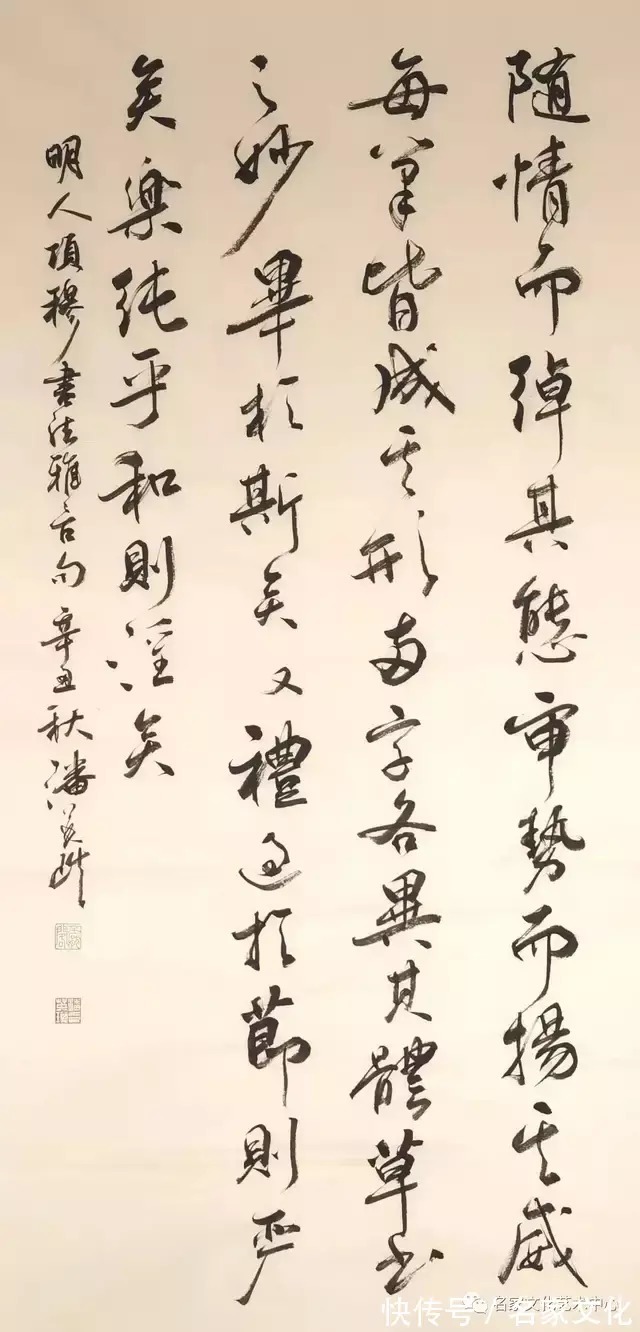 隨情而綽其態審勢而揚其威
每筆皆成其形兩字各異其體草書
之妙畢於斯矣又禮過於節則严
矣樂純乎和則淫矣
明人項穆書法雅言句辛丑秋潘
名家文化艺术中心
快传号/名家文化